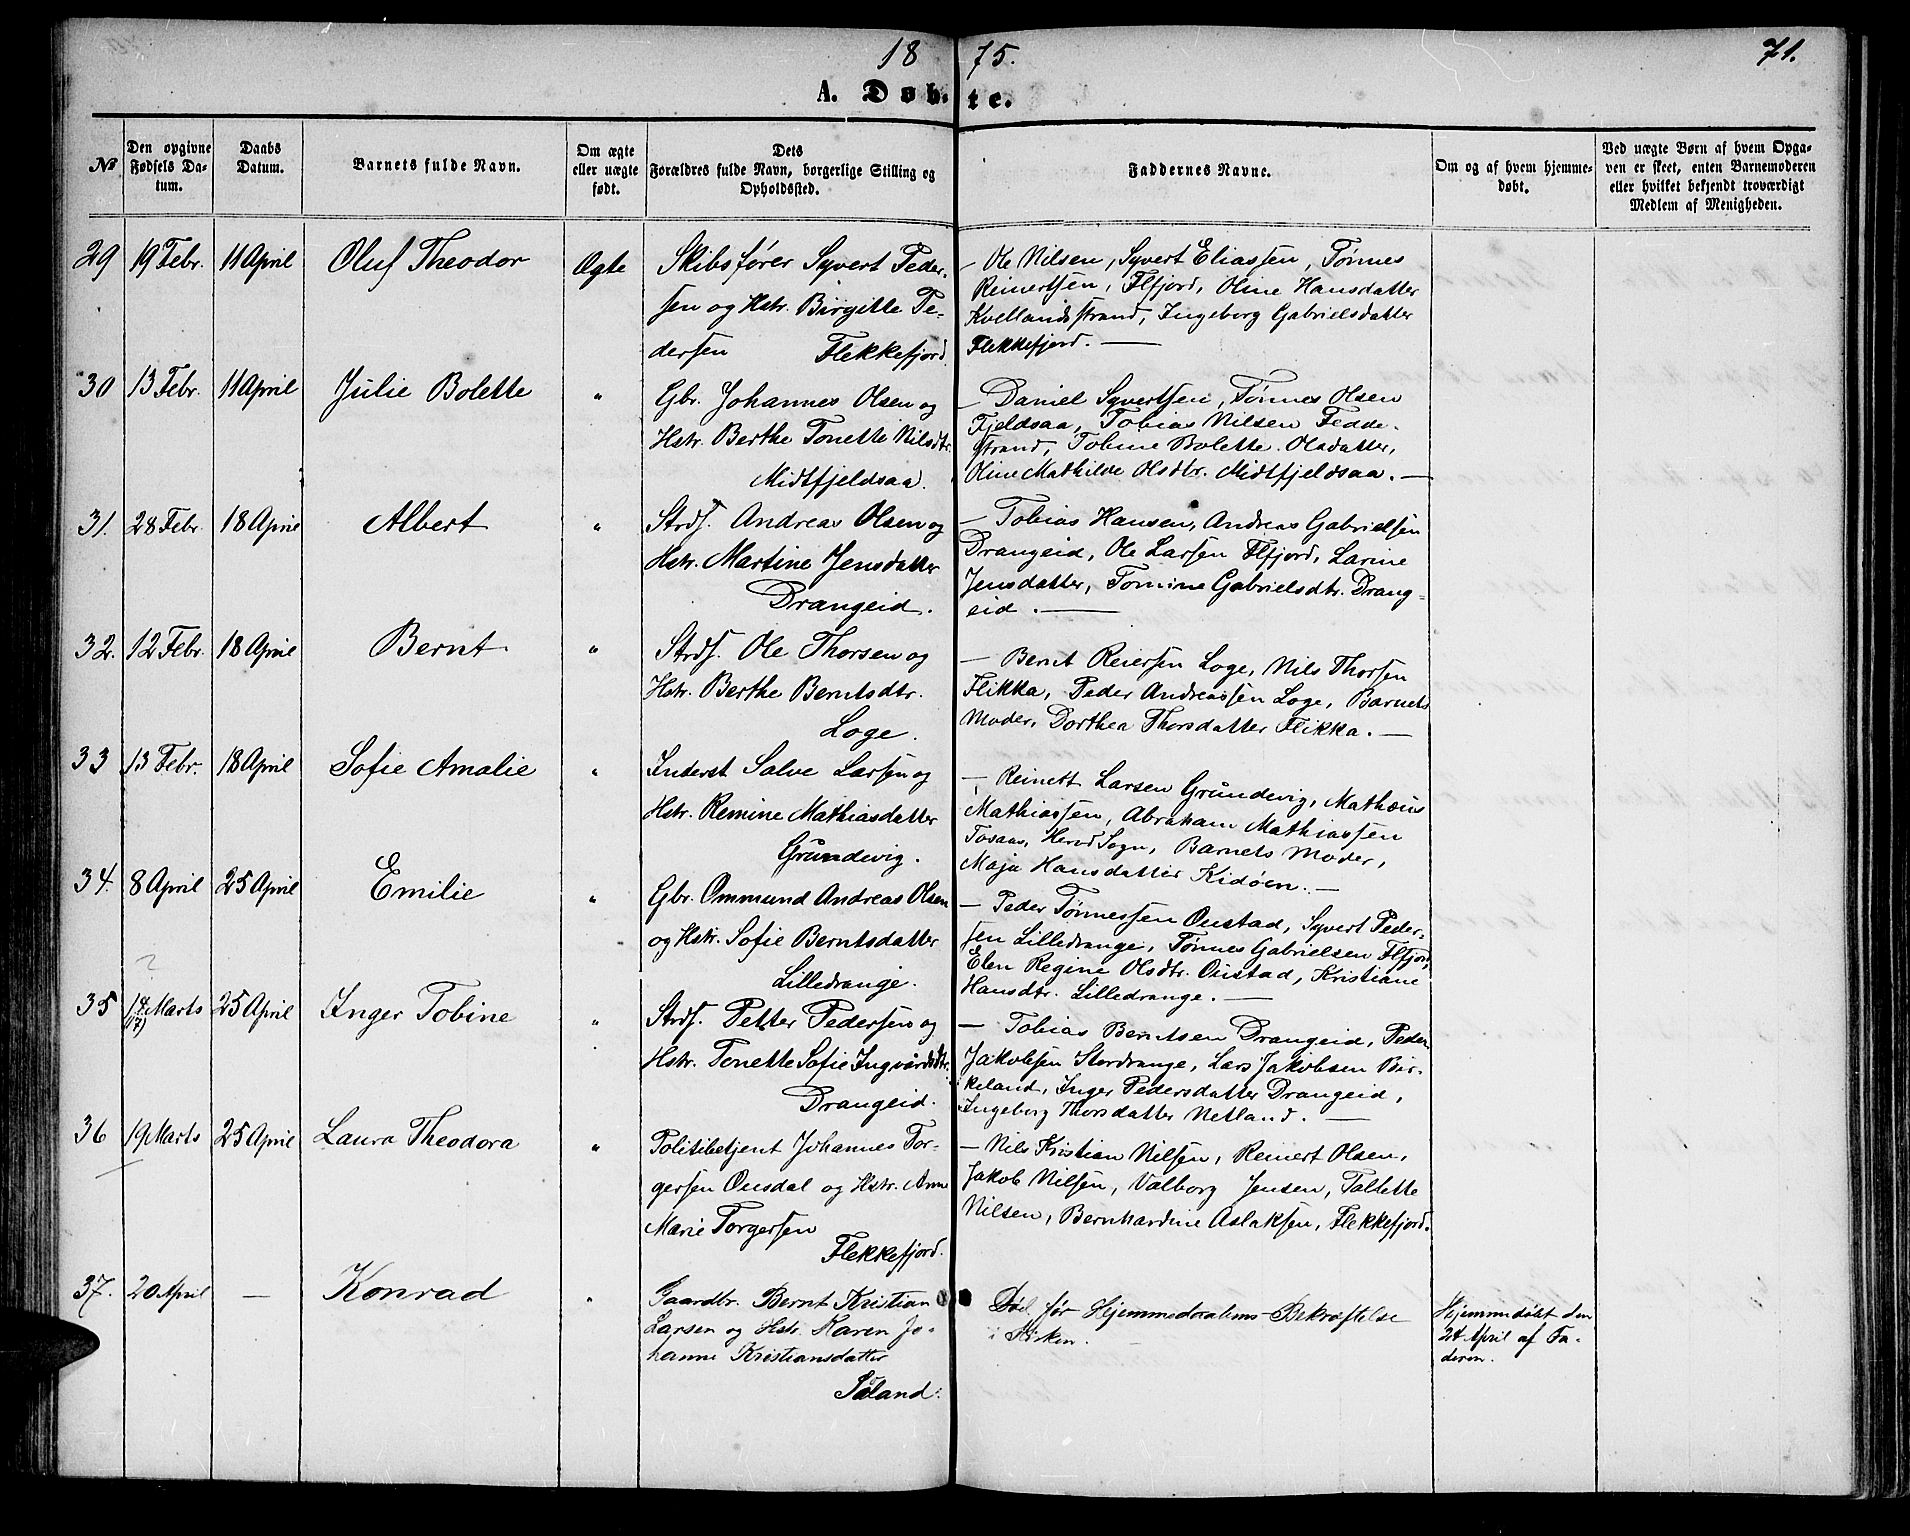 1875. 71.
A. Døbte.
No
Den opgivne Fødsels Datum.
Daabs Datum.
Barnets fulde Navn.
Om ægte eller uægte født.
Dets Forældres fulde Navn, borgerlige Stilling og Opholdssted.
Faddernes Navne.
Om og af hvem hjemmedøbt.
Ved uægte Børn af hvem Opgaven er skeet, enten Barnemoderen eller hvilket bekjendt troværdigt Medlem af Menigheden.
29 19 Febr. 11 April Oluf Theodor Ægte
Skibsfører Syvert Peder-
sen og Hstr. Birgitte Pe-
dersen Flekkefjord
— Ole Nilsen, Syvert Eliassen, Tønnes
Reinertsen, Flfjord, Oline Hansdatter
Kvellandsstrand, Ingeborg Gabrielsdatter
Flekkefjord. —
30 13 Febr. 11 April Julie Bolette "
Gbr. Johannes Olsen og
Hstr. Berthe Tonette Nilsdtr.
Midtfjeldsaa.
— Daniel Syvertsen, Tønnes Olsen
Fjeldsaa, Tobias Nilsen Fedde-
strand, Tobine Bolette Olsdatter,
Oline Mathilde Olsdtr. Midtfjeldsaa. —
31. 28 Febr. 18 April Albert "
Strds. Andreas Olsen og
Hstr. Martine Jensdatter
Drangeid.
— Tobias Hansen, Andreas Gabrielsen
Drangeid, Ole Larsen Flfjord, Larine
Jensdatter, Tomine Gabrielsdtr. Drang-
eid. —
32. 12 Febr. 18 April Bernt "
Strds. Ole Thorsen og
Hstr. Berthe Berntsdtr.
Loge.
— Bernt Reiersen Loge, Nils Thorsen
Flikka, Peder Andreassen Loge, Barnets
Moder, Dorthea Thorsdatter Flikka. —
33 13 Febr. 18 April Sofie Amalie "
Inderst Salve Larsen og
Hstr. Remine Mathiasdatter
Grundevig.
— Reinert Larsen Grundevig, Mathæus
Mathiassen, Abraham Mathiassen
Tosaas, Herred Sogn, Barnets Moder,
Maja Hansdatter Kidøen. —
34. 8 April 25 April Emilie "
Gbr. Ommund Andreas Olsen
og Hstr. Sofie Berntsdatter
Lilledrange.
— Peder Tønnessen Oustad, Syvert Peder-
sen Lilledrange, Tønnes Gabrielsen Flfjord,
Elen Regine Olsdtr. Oustad, Kristiane
Hansdtr. Lilledrange. —
?
35 14 Marts 25 April Inger Tobine "
(17)
Strds. Petter Pedersen og
Hstr. Tonette Sofie Ingvårdsdtr.
Drangeid.
— Tobias Berntsen Drangeid, Peder
Jakobsen Stordrange, Lars Jakobsen Bir-
keland, Inger Pedersdatter Drangeid,
Ingeborg Thorsdatter Netland. —
36 19 Marts 25 April Laura Theodora "
Politibetjent Johannes Tor-
gersen Ousdal og Hstr. Anne
Marie Torgersen
Flekkefjord.
— Nils Kristian Nilsen, Reinert Olsen,
Jakob Nilsen, Valborg Jensen, Tallette
Nilsen, Bernhardine Aslaksen, Flekkefjord.
37. 20 April — Konrad "
Gaardbr. Bernt Kristian
Larsen og Hstr. Karen Jo-
hanne Kristiansdatter
Søland.
Død før Hjemmedaabens Bekræftelse
i Kirken.
Hjemmedøbt den
24 April af Fa-
deren.